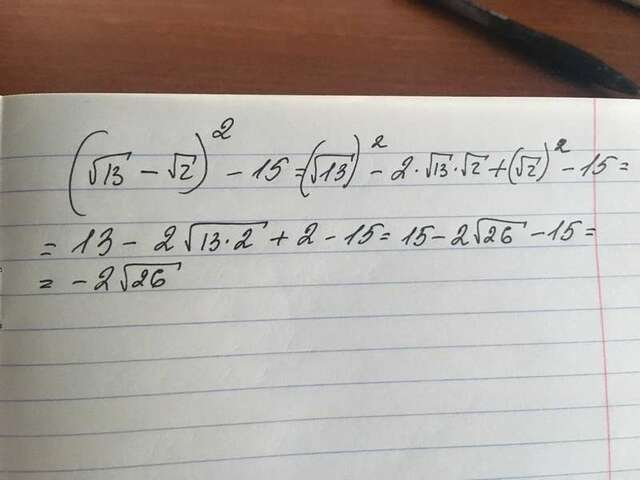 (√13 − √2)² − 15 = (√13)² − 2·√13·√2 + (√2)² − 15 =
= 13 − 2√13·2 + 2 − 15 = 15 − 2√26 − 15 =
= −2√26